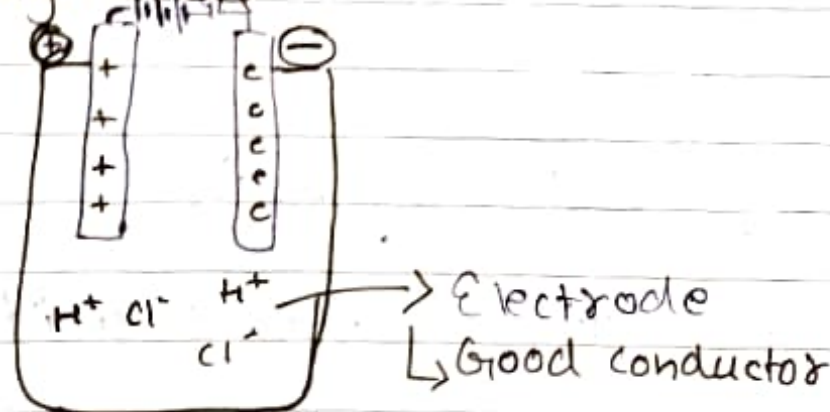 + −
+ e
+ e
+ e
+ e
e
H⁺ Cl⁻ H⁺
Cl⁻
Electrode
Good conductor